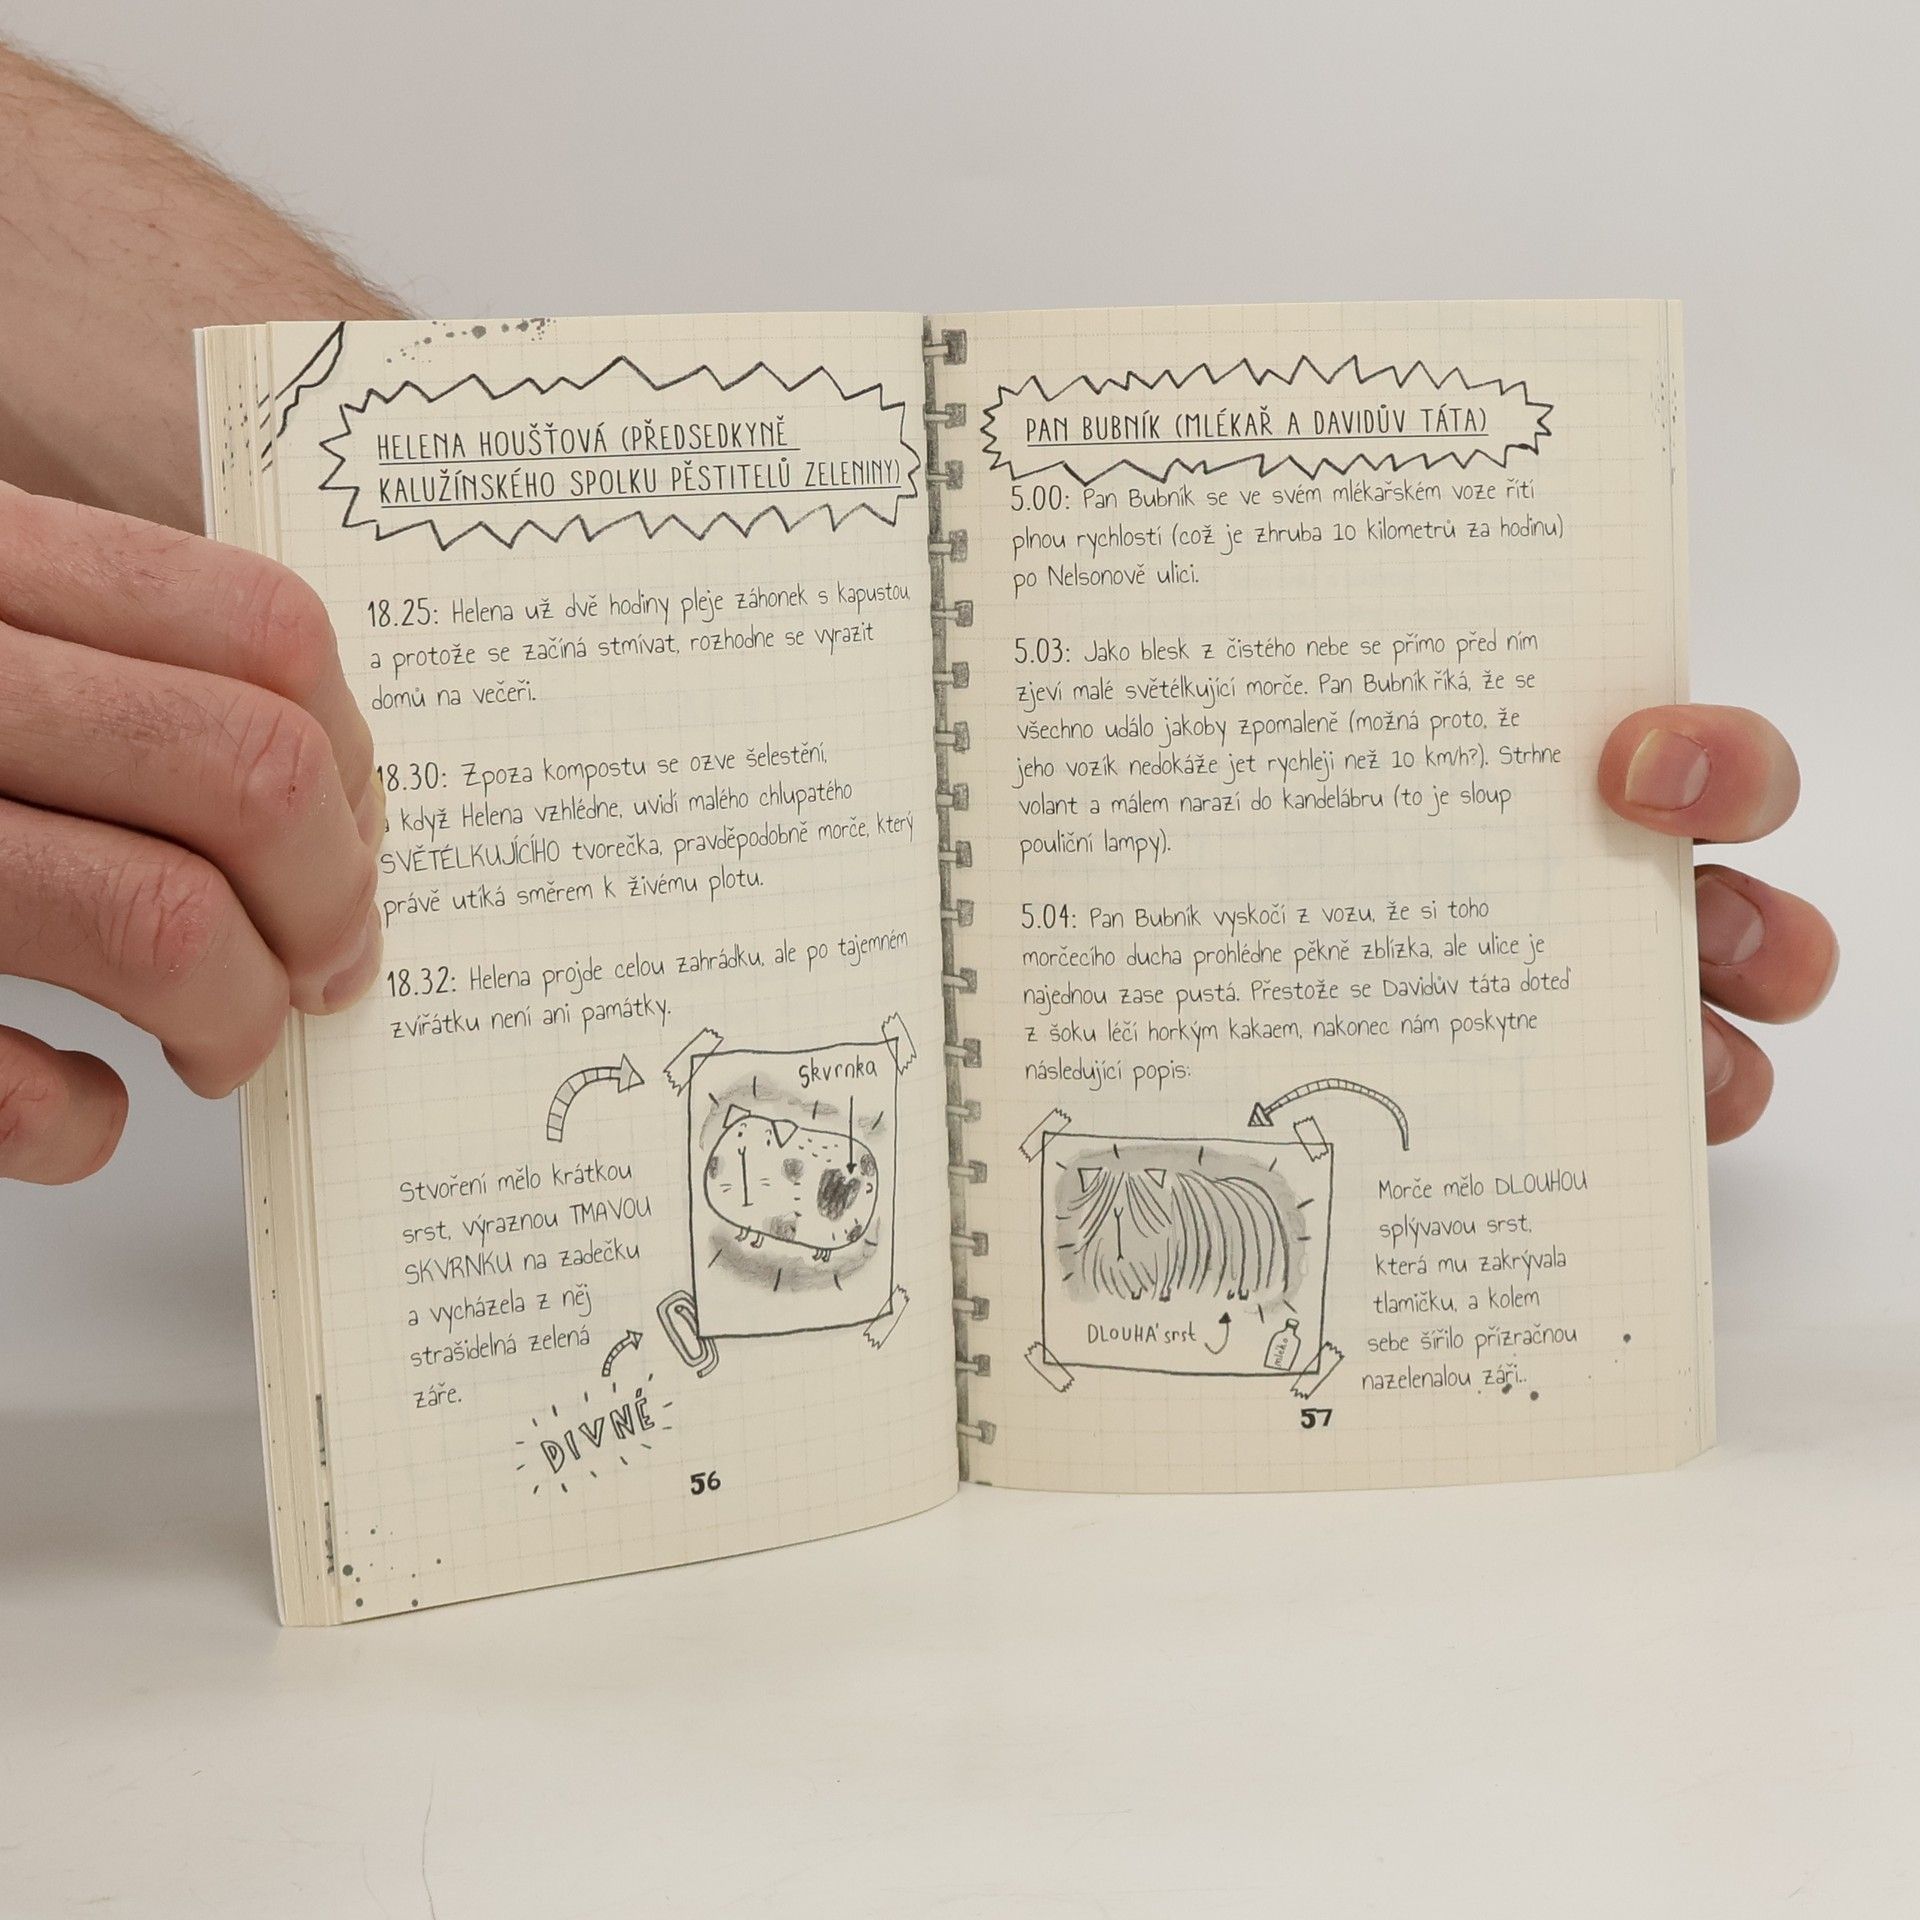 HELENA HOUŠŤOVÁ (PŘEDSEDKYNĚ
KALUŽÍNSKÉHO SPOLKU PĚSTITELŮ ZELENINY)
18.25: Helena už dvě hodiny pleje záhonek s kapustou,
a protože se začíná stmívat, rozhodne se vyrazit
domů na večeři.
18.30: Zpoza kompostu se ozve šelestění,
a když Helena vzhlédne, uvidí malého chlupatého
SVĚTÉLKUJÍCÍHO tvorečka, pravděpodobně morče, který
právě utíká směrem k živému plotu.
18.32: Helena projde celou zahrádku, ale po tajemném
zvířátku není ani památky.
Skvrnka
Stvoření mělo krátkou
srst, výraznou TMAVOU
SKVRNKU na zadečku
a vycházela z něj
strašidelná zelená
záře.
DIVNÉ
56
PAN BUBNÍK (MLÉKAŘ A DAVIDŮV TÁTA)
5.00: Pan Bubník se ve svém mlékařském voze řítí
plnou rychlostí (což je zhruba 10 kilometrů za hodinu)
po Nelsonově ulici.
5.03: Jako blesk z čistého nebe se přímo před ním
zjeví malé světélkující morče. Pan Bubník říká, že se
všechno událo jakoby zpomaleně (možná proto, že
jeho vozík nedokáže jet rychleji než 10 km/h?). Strhne
volant a málem narazí do kandelábru (to je sloup
pouliční lampy).
5.04: Pan Bubník vyskočí z vozu, že si toho
morčecího ducha prohlédne pěkně zblízka, ale ulice je
najednou zase pustá. Přestože se Davidův táta doteď
z šoku léčí horkým kakaem, nakonec nám poskytne
následující popis:
DLOUHÁ srst
mléko
Morče mělo DLOUHOU
splývavou srst,
která mu zakrývala
tlamičku, a kolem
sebe šířilo přízračnou
nazelenalou záři..
57